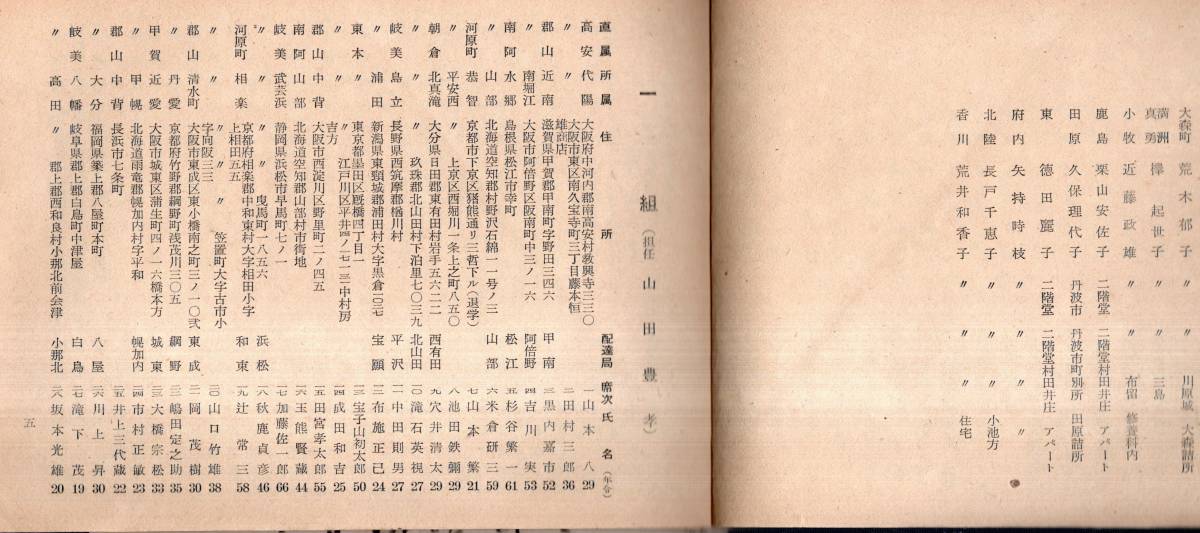 大森町 荒木郁子 〃 川原城 大森詰所
満洲真勇 擇起世子 〃 三島
小牧 近藤政雄 〃 布留 修養科内
鹿島 栗山安佐子 二階堂 二階堂村田井庄 アパート
田原 久保理代子 丹波市 丹波市町別所 田原詰所
東 徳田麗子 二階堂 二階堂村田井庄 アパート
府内 矢持時枝 〃 〃 〃
北陸 長戸千恵子 〃 〃 小池方
香川 荒井和香子 〃 〃 住宅
一組 (担任 山田豊孝)
直属 所属 住所 配達局 席次 氏名 (年令)
高安 代陽 大阪府中河内郡南高安村教興寺三三〇 一 山本八 29
〃 〃 大阪市東区南久宝寺町三丁目藤本恒雄商店 二 田村三郎 36
郡山 近南 滋賀県甲賀郡甲南町字野田三四六 甲南 三 黒内嘉市 52
〃 南堀江 大阪市阿倍野区阪南町中三ノ一六 阿倍野 四 吉川実 53
南阿 水郷 島根県松江市幸町 松江 五 杉谷繁一 61
〃 山部 北海道空知郡村野沢石綿一一号ノ三 山部 六 米倉研三 59
河原町 恭智 京都市下京区猪熊通り三哲下ル(退学) 七 山本繁 21
〃 平安西 〃 上京区西堀川一条上之町八五〇 八 池田鉄彌 29
朝倉 北真滝 大分県日田郡東有田村岩手五六二二 西有田 九 穴井清太 29
〃 〃 〃 玖珠郡北山田村下泊里七〇三九 北山田 一〇 滝石英視 27
岐美 島立 長野県西筑摩郡楢川村 平沢 一一 中田則男 27
〃 浦田 新潟県東頸城郡浦田村大字黒倉一〇三七 宝顕 一二 布施正已 24
東本 〃 東京都墨田区厩橋四丁目一 一三 宝子山初太郎 50
〃 〃 〃 江戸川区平井四ノ七一三一中村房吉方 一四 成田和吉 25
郡山 中背 大阪市西淀川区野里町二ノ四五 一五 田宮孝太郎 55
南阿 山部 北海道空知郡山部村市街地 一六 玉熊賢藏 44
岐美 武芸浜 静岡県浜松市早馬町七ノ一 一七 加藤佐一郎 66
〃 〃 〃 曳馬町一八五六 浜松 一八 秋鹿貞彦 46
河原町 相楽 京都府相楽郡中和東村大字相田小字上相田五五 和東 一九 辻常三 58
〃 〃 〃 笠置町大字古市小字向阪三三 二〇 山口竹雄 38
郡山 清水町 大阪市東成区東小橋南之町三ノ一〇弐 東成 二一 岡茂樹 30
〃 丹愛 京都府竹野郡網野町浅茂川三〇五 網野 二二 嶋田定之助 35
甲賀 近愛 大阪市城東区蒲生町四ノ一六橋本方 城東 二三 大橋宗松 33
〃 甲幌 北海道雨竜郡幌加内村字平和 幌加内 二四 市村正敏 23
郡山 中背 長浜市七条町 二五 井上三代藏 22
〃 大分 福岡県築上郡八屋町本町 八屋 二六 川上昇 30
岐美 八幡 岐阜県郡上郡白鳥町中津屋 白鳥 二七 滝下茂 19
〃 高田 〃 郡上郡西和良村小那北前会津 小那北 二八 坂本光雄 20
五